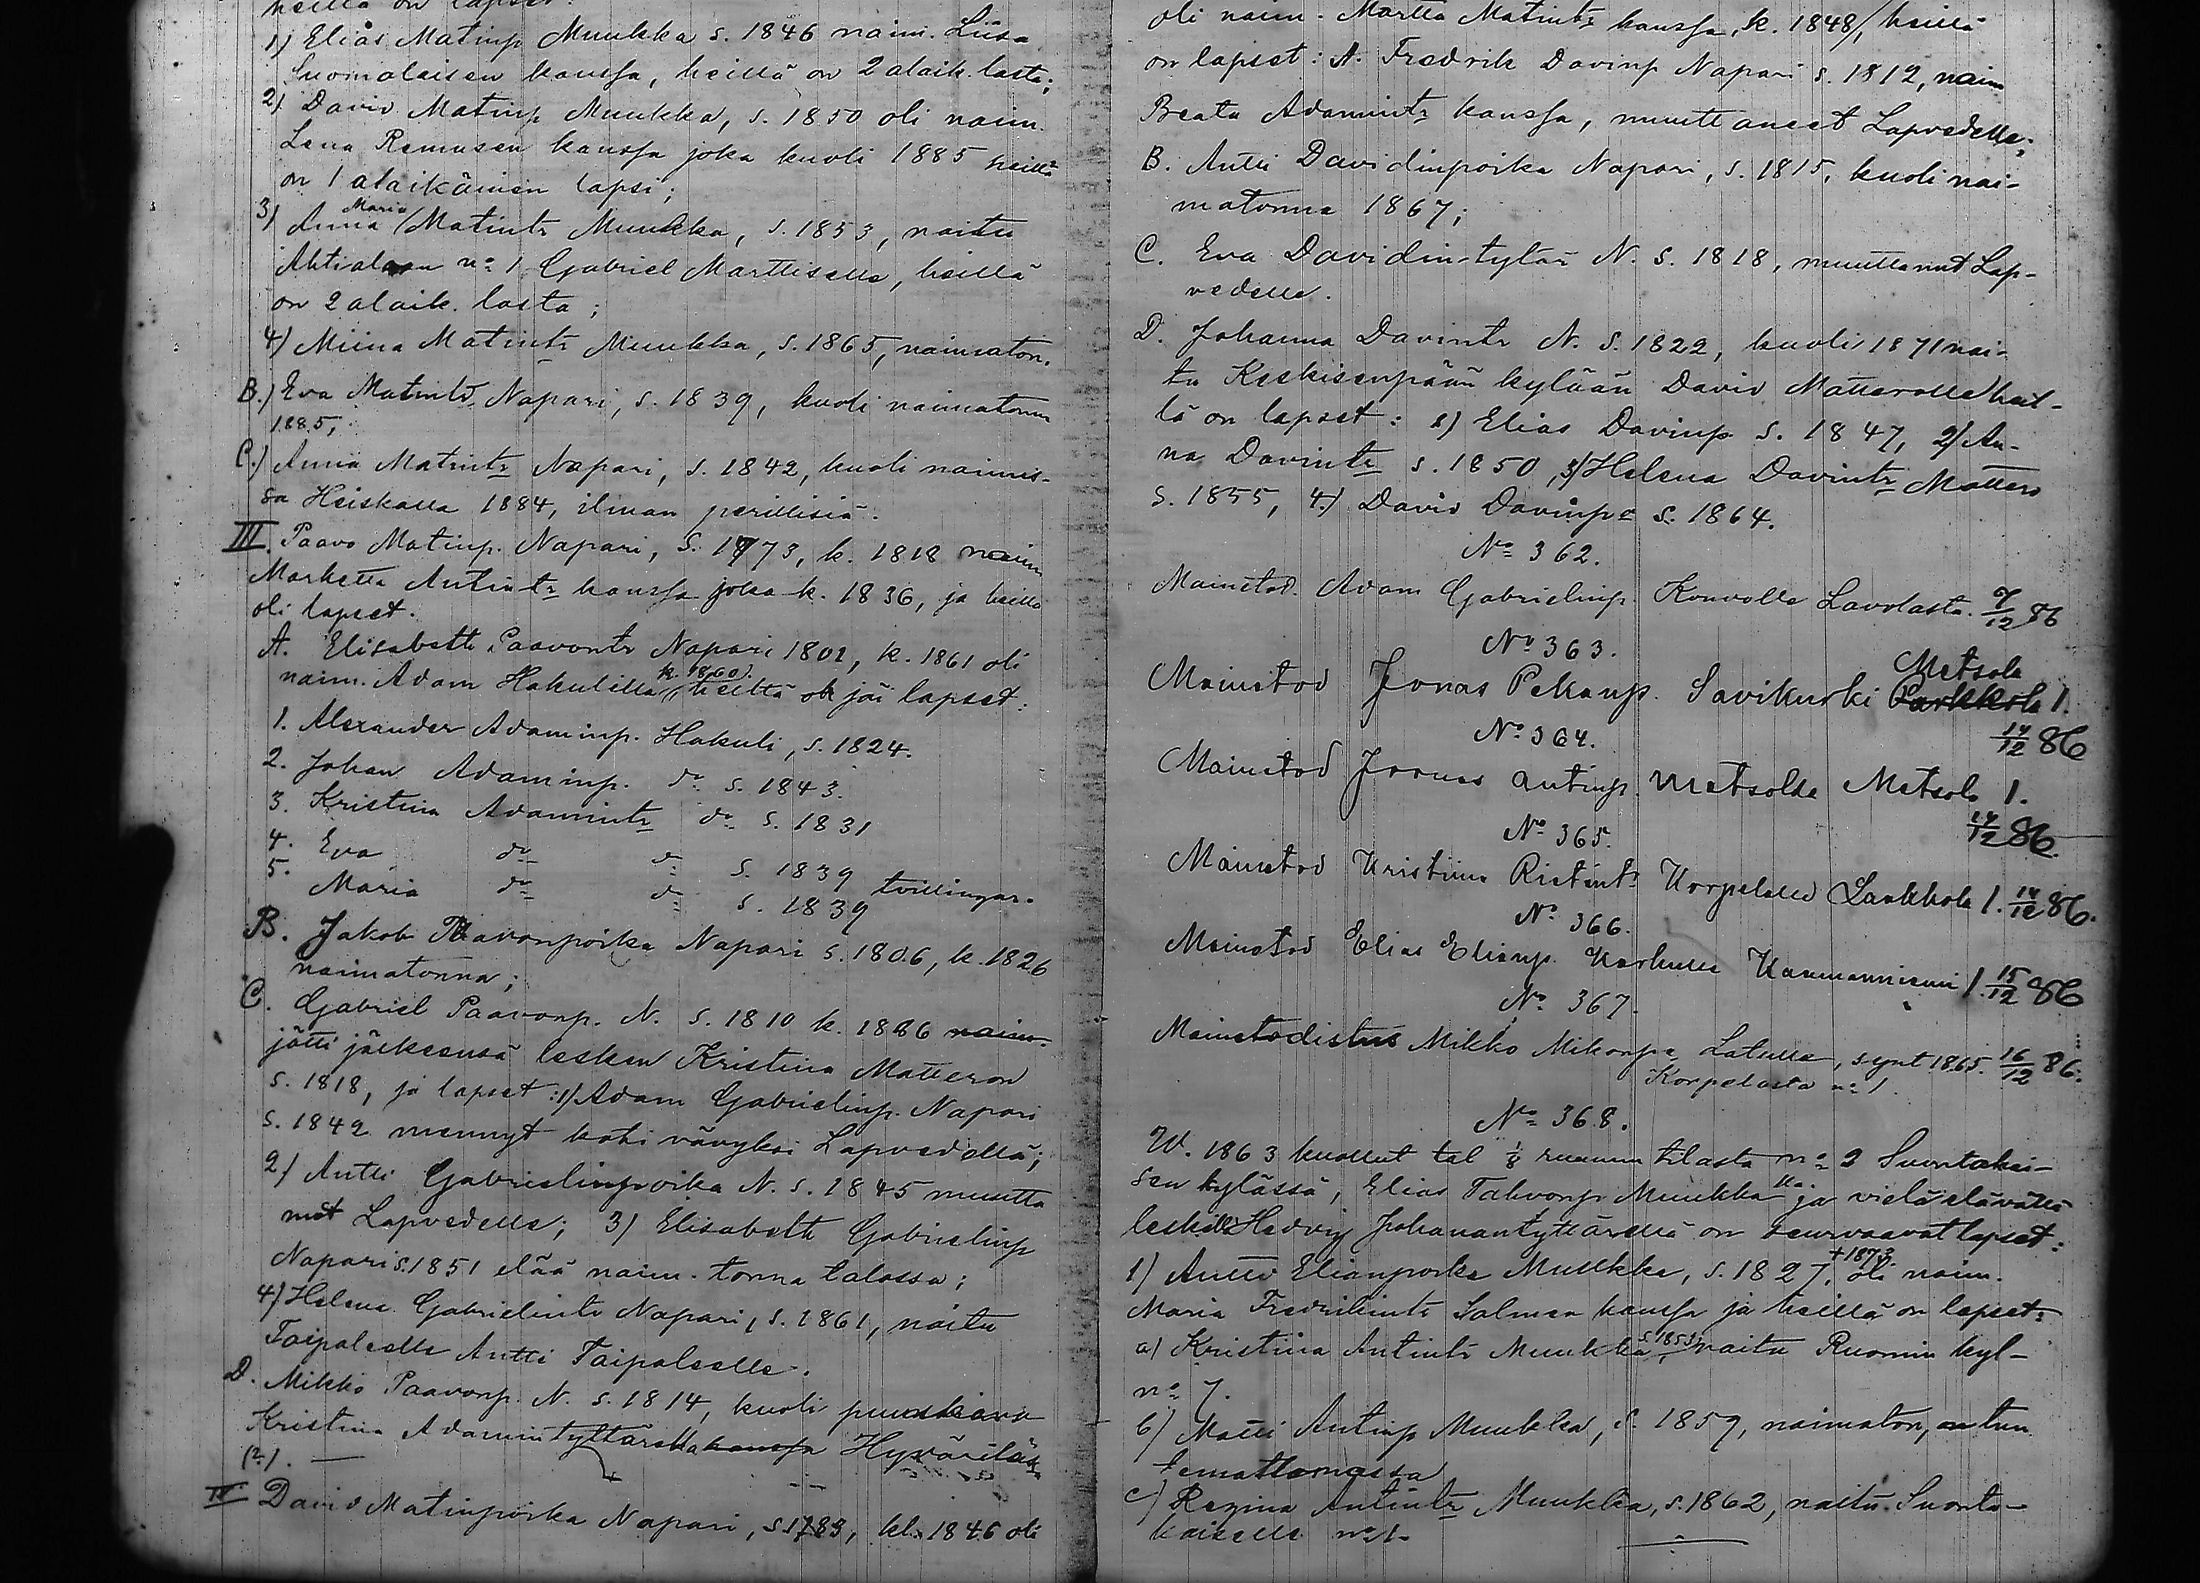 heillä on lapset:
1) Elias Matinp Muukka s. 1846 naim. Liisa
Suomalaisen kanssa, heillä on 2 alaik. lasta;
2) David Matinp Muukka, s. 1850 oli naim.
Lena Remusen kanssa joka kuoli 1885 heillä
on 1 alaikäinen lapsi;
3) Anna Maria Matintr Muukka, s. 1853, naitu
Ahtialaan no 1 Gabriel Marttiselle, heillä
on 2 alaik. lasta;
4) Miina Matintr Muukka, s. 1865, naimaton.
B.) Eva Matintr Napari, s. 1839, kuoli naimatonna
1885;
C.) Anna Matintr Napari, s. 1842, kuoli naimis-
sa Heiskalla 1884, ilman perillisiä.
III. Paavo Matinp. Napari, s. 1773, k. 1818 naim
Marketta Antintr kanssa joka k. 1836, ja heillä
oli lapset.
A. Elisabeth Paavontr Napari 1801, k. 1861 oli
naim. Adam Hakulilla k. 1860. heiltä jäi lapset:
1. Alexander Adaminp. Hakuli, s. 1824.
2. Johan Adaminp. do s. 1843.
3. Kristina Adamintr do s. 1831
4. Eva do do s. 1839
5. Maria do do s. 1839 tvillingar.
B. Jakob Paavonpoika Napari s. 1806, k. 1826
naimatonna;
C. Gabriel Paavonp. N. s. 1810 k. 1886 naim.
jätti jälkeensä lesken Kristina Matteron
s. 1818, ja lapset: 1) Adam Gabrielinp. Napari
s. 1842 mennyt koti vävyksi Lapvedellä;
2) Antti Gabrielinpoika N. s. 1845 muutta
nut Lapvedelle; 3) Elisabeth Gabrielinp
Napari s. 1851 elää naim. tonna talossa;
4) Helena Gabrielintr Napari, s. 1861, naitu
Taipaleelle Antti Taipaleelle.
D. Mikko Paavonp. N. s. 1814, kuoli
Kristina Adamintyttärellä kanssa Hyvärilä
(2).
IV David Matinpoika Napari, s. 1783, kl. 1846 oli
oli naim. Martta Matintr kanssa, k. 1848/, heillä
on lapset: A. Fredrik Davinp Napari s. 1812, naim
Beata Adamintr kanssa, muuttaneet Lapvedelle;
B. Antti Davidinpoika Napari, s. 1815, kuoli nai-
matonna 1867;
C. Eva Davidin-tytär N. s. 1818, muuttanut Lap-
vedelle.
D. Johanna Davintr N. s. 1822, kuoli 1871 nai-
tu Keskisenpään kylään David Matterolle) heil-
lä on lapset: 1) Elias Davinp s. 1847, 2) An-
na Davintr s. 1850, 3) Helena Davintr Mattero
s. 1855, 4.) David Davinp s. 1864.
No 362.
Mainetod. Adam Gabrielinp. Kouvolle Lavolasta. 7/12 86
No 363.
Mainetod Jonas Pekanp. Savikurki Metsola
Parkkola 1.
14/12 86
No 364.
Mainetod Joonas Antinp. Metsolle Metsola 1.
14/12 86.
No 365.
Mainetod Kristiina Ristintr Korpelalle Laukkola 1. 14/12 86.
No 366.
Mainetod Elias Elianp. Karhulle Kaumanniemi 1. 15/12 86
No 367.
Mainetodistus Mikko Mikonp. Latulle, synt 1865. 16/12 86.
Korpelasta no 1.
No 368.
W. 1863 kuollut tal 1/8 ruunun tilasta no 2 Suontakai-
sen kylässä, Elias Tahvonp Muukka lla ja vielä elävällä
leskellä Hedvig Juhanantyttärellä on seuraavat lapset:
1) Antti Elianpoika Muukka, s. 1827, +1873. oli naim.
Maria Fredrikintr Salmen kanssa ja heillä on lapset:
a) Kristiina Antintr Muukka s. 1853, naitu Ruomin kyl-
no 7.
b) Matti Antinp Muukka, s. 1859, naimaton, on tun
temattomassa
c) Regina Antintr Muukka, s. 1862, naitu Suonta-
kaiselle no 1.